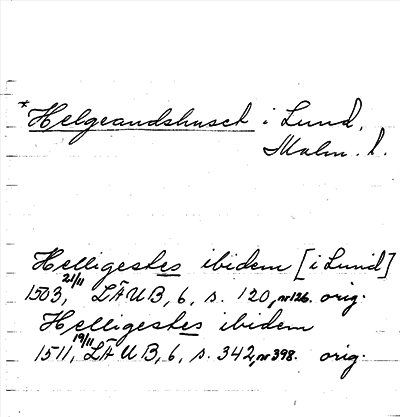 *Helgeandshuset i Lund,
Malm. l.
Helligestes ibidem [i Lund]
1503, 21/11 LÄUB, 6, s. 120, nr 126. orig.
Helligestes ibidem
1511, 19/11 LÄUB, 6, s. 342, nr 398. orig.